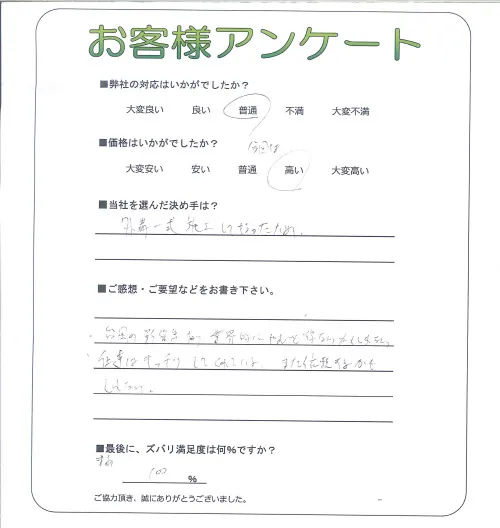 お客様アンケート
■弊社の対応はいかがでしたか？
大変良い 良い 普通 不満 大変不満
■価格はいかがでしたか？ 今回は
大変安い 安い 普通 高い 大変高い
■当社を選んだ決め手は？
外算一式 施工してもらったため。
■ご感想・ご要望などをお書き下さい。
台風の影響
業界的に
仕事は してくれている また依頼するかも
しれない。
■最後に、ズバリ満足度は何%ですか？
100 %
ご協力頂き、誠にありがとうございました。